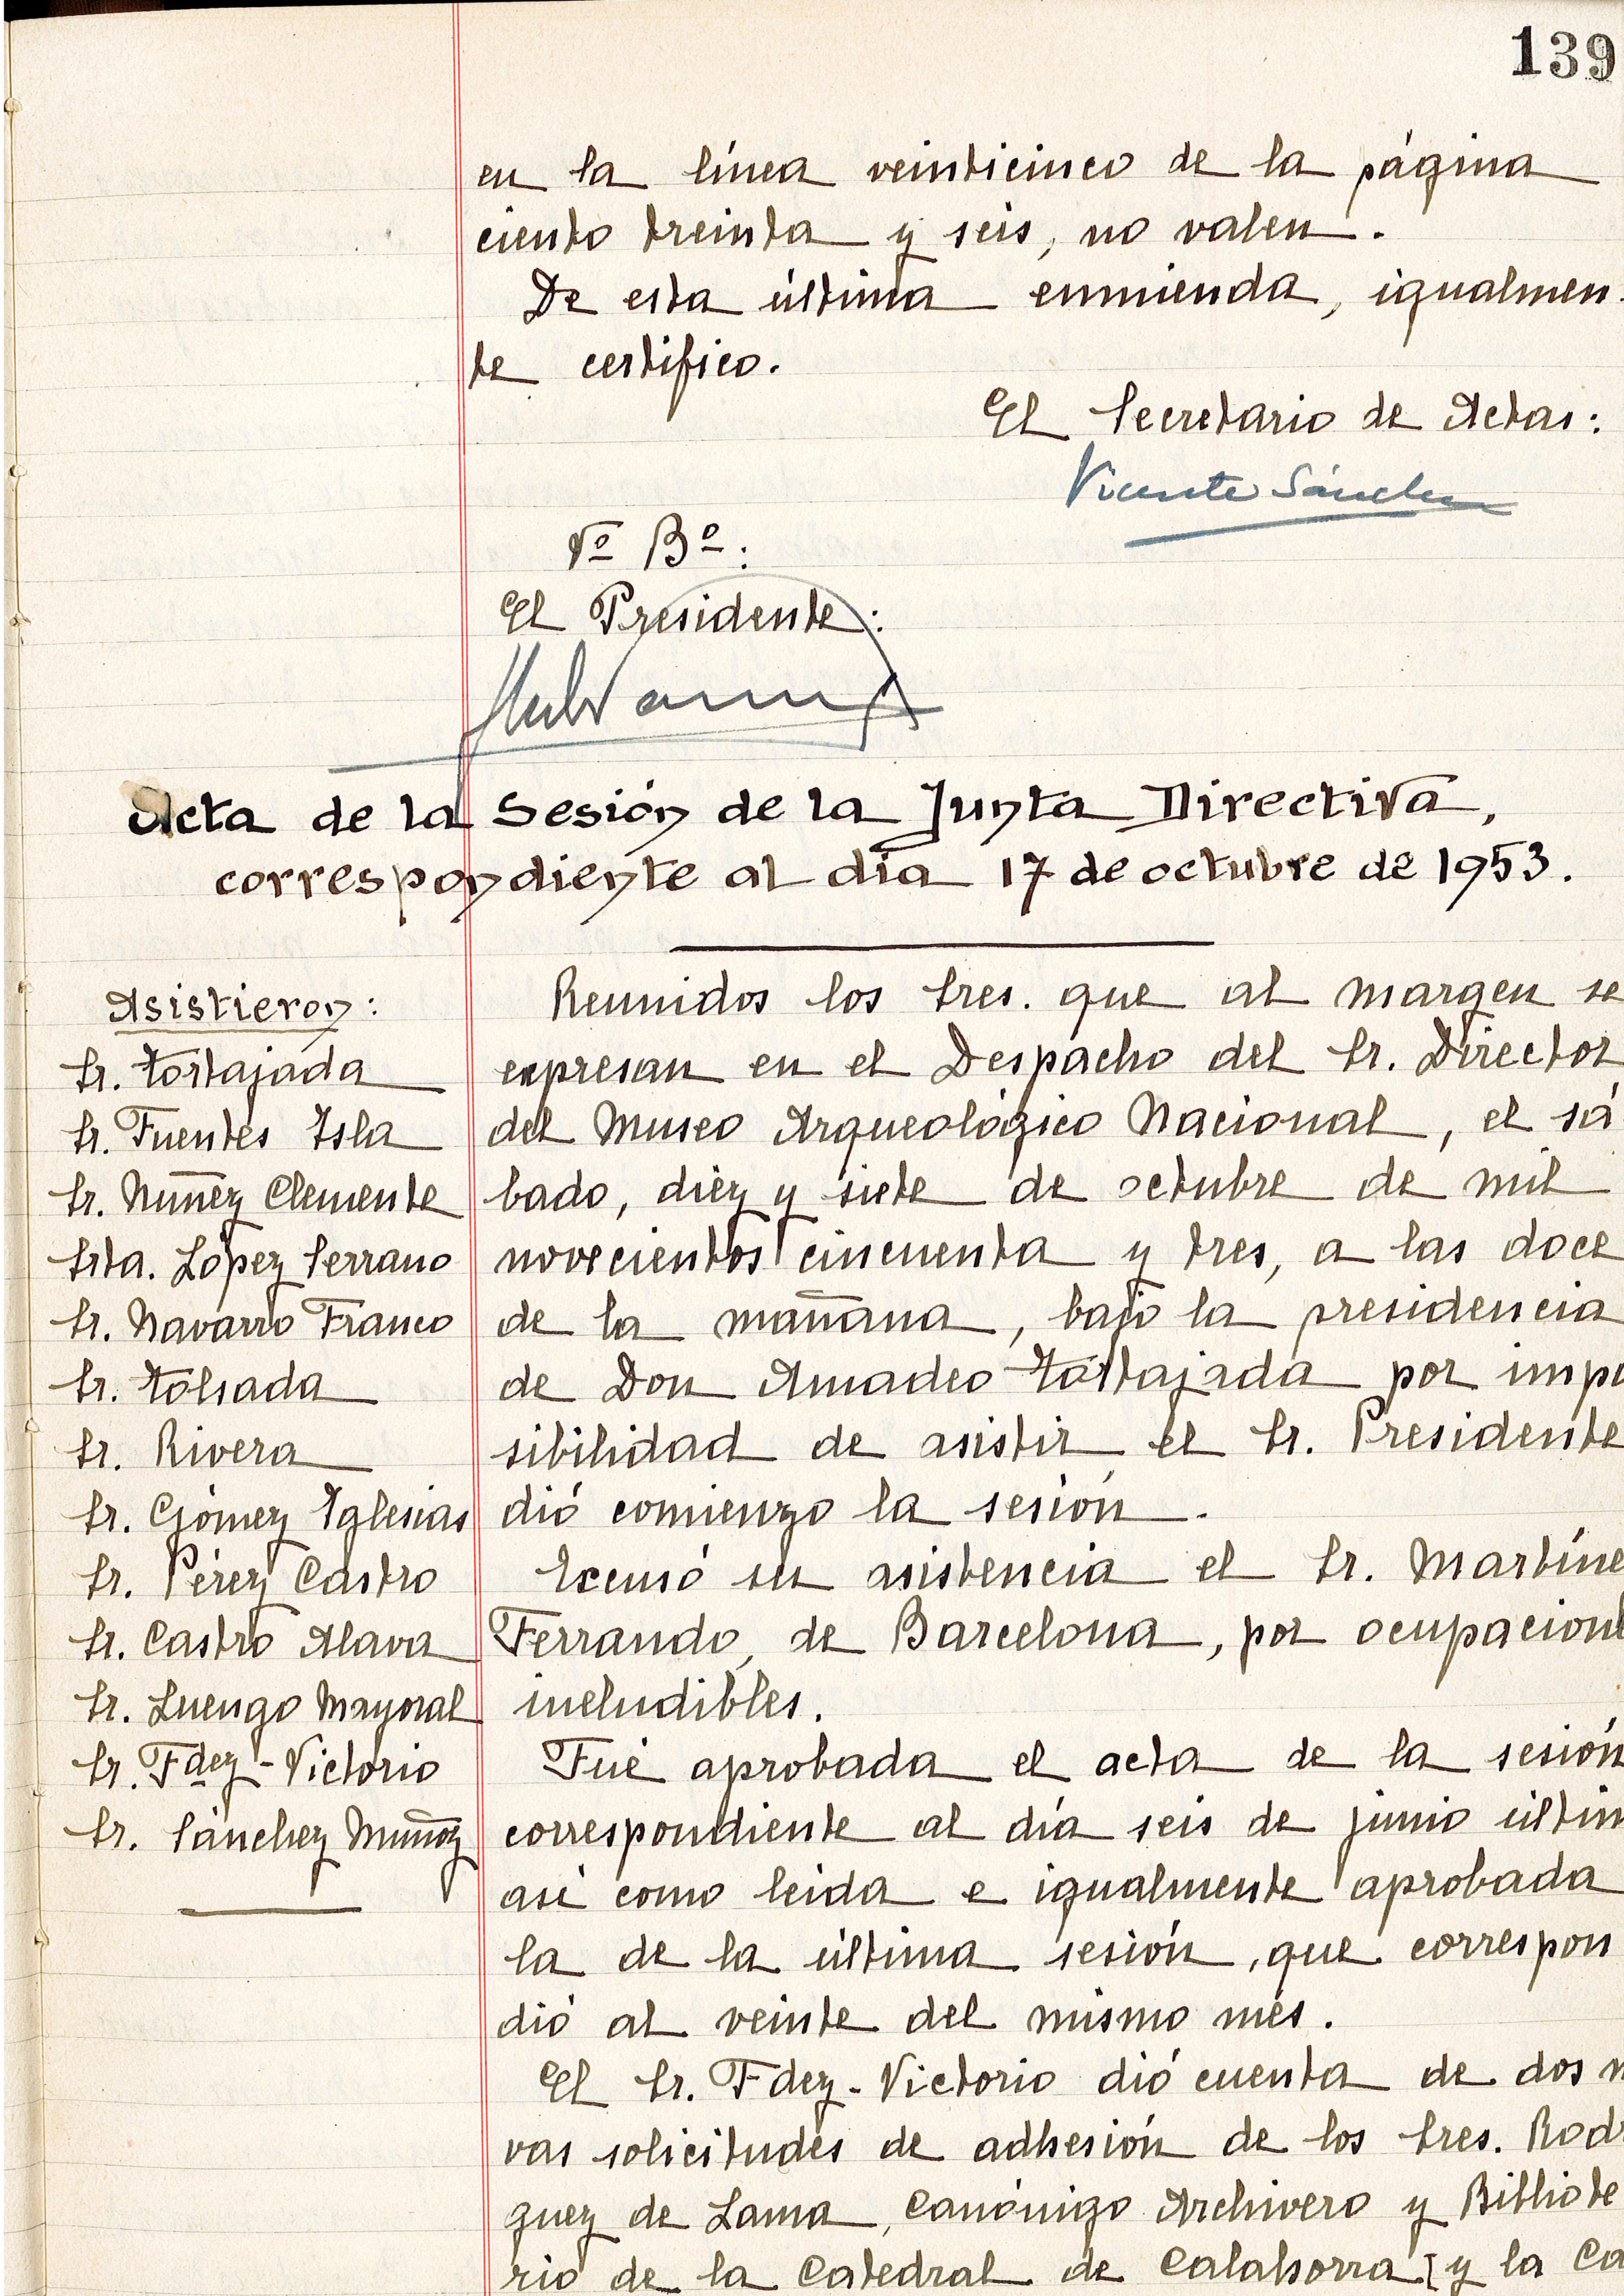 139
en la línea veinticinco de la página
ciento treinta y seis, no valen.
De esta última enmienda, igualmen-
te certifico.
El Secretario de Actas:
Vicente Sánchez
Vº Bº:
El Presidente:
Acta de la Sesión de la Junta Directiva,
correspondiente al día 17 de octubre de 1953.
Asistieron:
Sr. Tortajada
Sr. Fuentes Isla
Sr. Núñez Clemente
Srta. López Serrano
Sr. Navarro Franco
Sr. Tolsada
Sr. Rivera
Sr. Gómez Iglesias
Sr. Pérez Castro
Sr. Castro Alava
Sr. Luengo Mayoral
Sr. Fdez-Victorio
Sr. Sánchez Muñoz
Reunidos los Sres. que al margen se
expresan en el Despacho del Sr. Director
del Museo Arqueológico Nacional, el sá
bado, diéz y siete de octubre de mil
novecientos cincuenta y tres, a las doce
de la mañana, bajo la presidencia
de Don Amadeo Tortajada por impo
sibilidad de asistir el Sr. Presidente
dió comienzo la sesión.
Excusó su asistencia el Sr. Martíne
Ferrando, de Barcelona, por ocupacione
ineludibles.
Fué aprobada el acta de la sesión
correspondiente al día seis de junio últim
así como leida e igualmente aprobada
la de la última sesión, que correspon
dió al veinte del mismo més.
El Sr. Fdez-Victorio dió cuenta de dos n
vas solicitudes de adhesión de los Sres. Rodr
guez de Lama, Canónigo Archivero y Bibliote
rio de la Catedral de Calahorra y la Ca